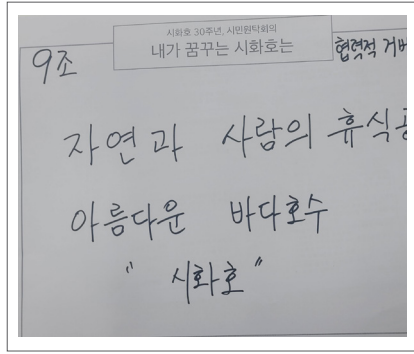 시화호 30주년, 시민원탁회의
내가 꿈꾸는 시화호는
9조
협력적
자연과 사람의
아름다운 바다호수
" 시화호 "